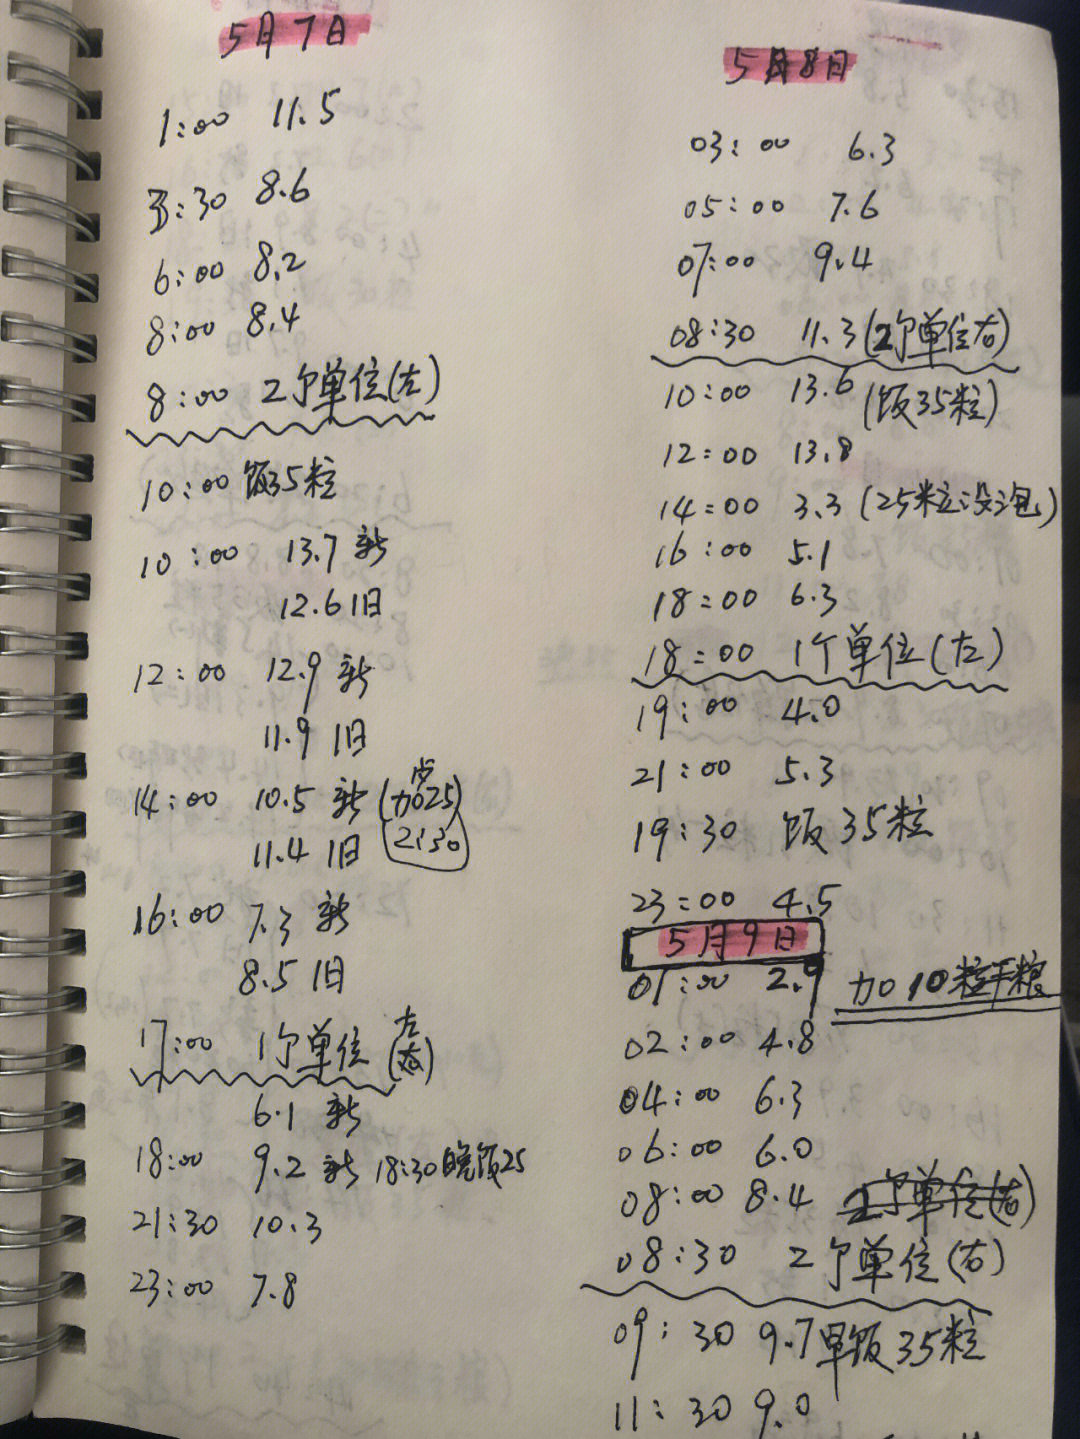 5月7日
1:00 11.5
3:30 8.6
6:00 8.2
8:00 8.4
8:00 2个单位(左)
10:00 饭35粒
10:00 13.7 新
12.6 旧
12:00 12.9 新
11.9 旧
14:00 10.5 新 (加25)
11.4 旧 2:30
16:00 7.3 新
8.5 旧
17:00 1个单位 左
(右)
6.1 新
18:00 9.2 新 18:30晚饭25
21:30 10.3
23:00 7.8
5月8日
03:00 6.3
05:00 7.6
07:00 9.4
08:30 11.3 (2个单位右)
10:00 13.6 (饭35粒)
12:00 13.8
14:00 3.3 (25粒没泡)
16:00 5.1
18:00 6.3
18:00 1个单位(左)
19:00 4.0
21:00 5.3
19:30 饭35粒
23:00 4.5
5月9日
01:00 2.9 加10粒干粮
02:00 4.8
04:00 6.3
06:00 6.0
08:00 8.4 2个单位(右)
08:30 2个单位(右)
09:30 9.7 早饭35粒
11:30 9.0